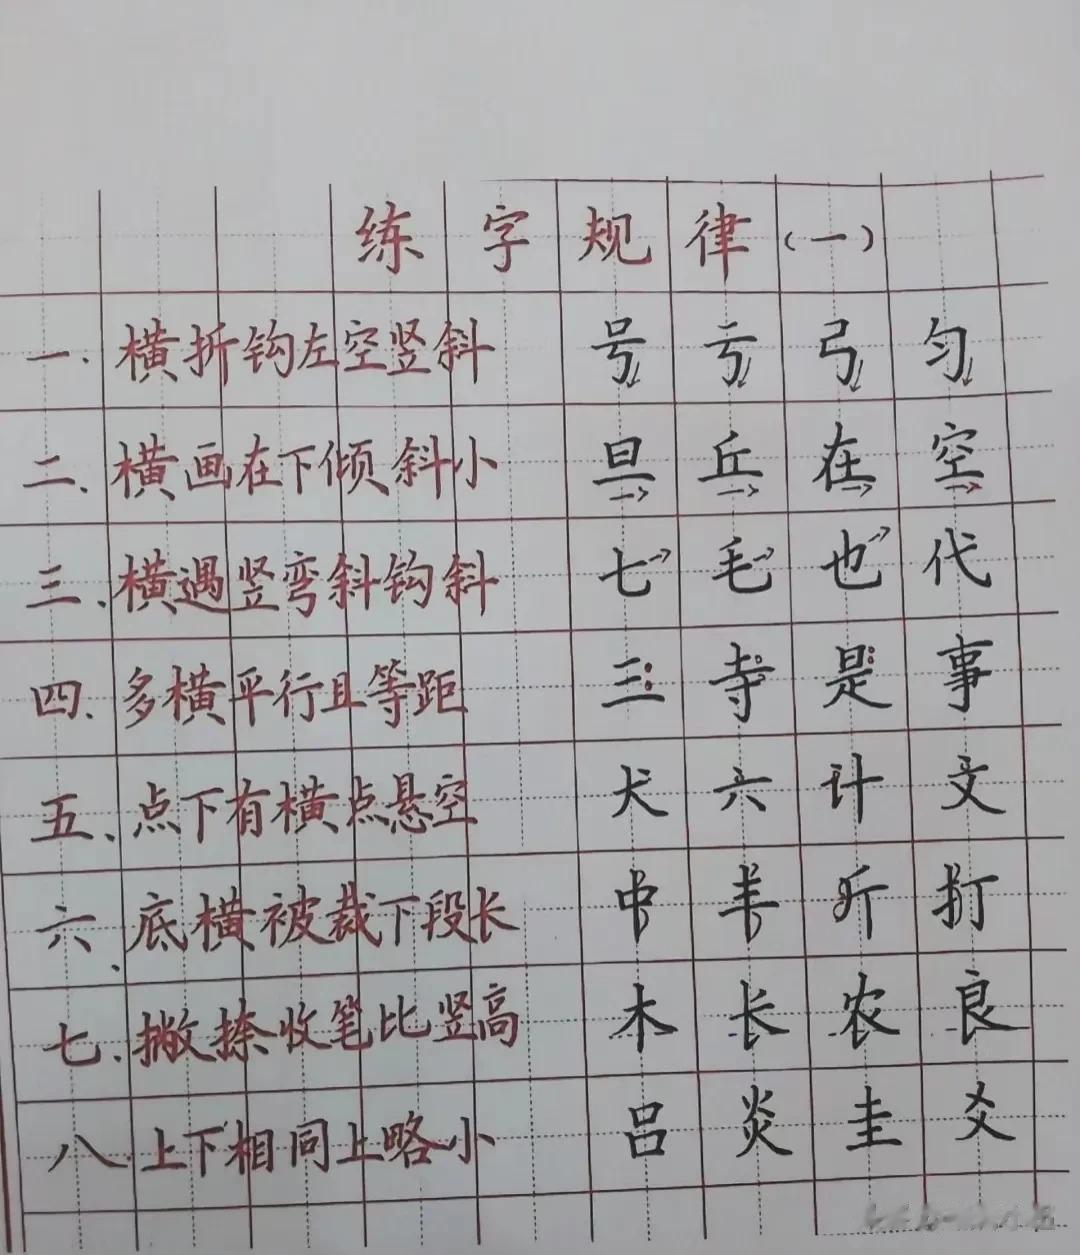 练字规律(一)
一.横折钩左空竖斜 号 亏 弓 匀
二、横画在下倾斜小 旦 丘 在 空
三、横遇竖弯斜钩斜 七 毛 也 代
四.多横平行且等距 三 寺 是 事
五、点下有横点悬空 犬 六 计 文
六、底横被裁下段长 中 羊 斤 打
七.撇捺收笔比竖高 木 长 农 良
八.上下相同上略小 吕 炎 圭 爻